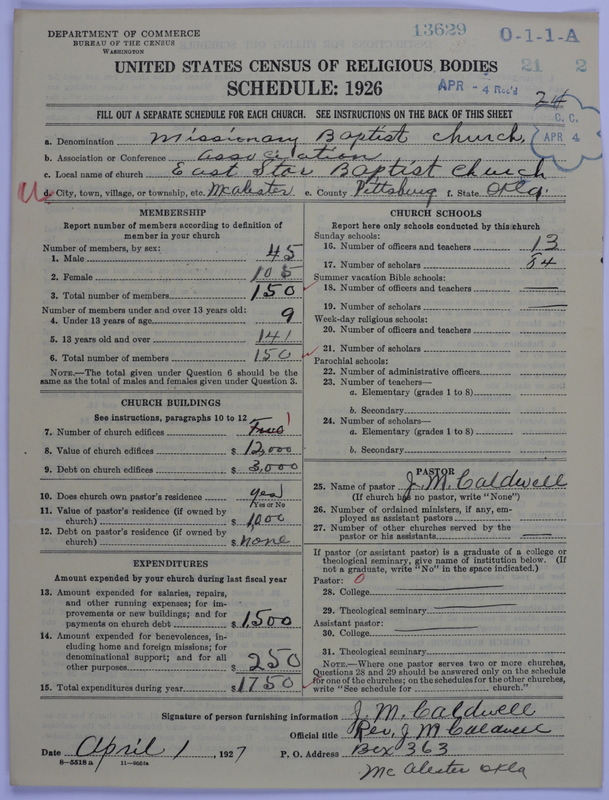 DEPARTMENT OF COMMERCE
BUREAU OF THE CENSUS
WASHINGTON
13629
O-1-1-A
21 2
UNITED STATES CENSUS OF RELIGIOUS BODIES
SCHEDULE: 1926
APR - 4 Rec'd
24
FILL OUT A SEPARATE SCHEDULE FOR EACH CHURCH. SEE INSTRUCTIONS ON THE BACK OF THIS SHEET
C. C.
APR 4
a. Denomination Missionary Baptist Church,
b. Association or Conference Association
c. Local name of church East Star Baptist Church
d. City, town, village, or township, etc. McAlester e. County Pittsburg f. State Okla.
MEMBERSHIP
Report number of members according to definition of
member in your church
Number of members, by sex:
1. Male 45
2. Female 105
3. Total number of members 150
Number of members under and over 13 years old:
4. Under 13 years of age 9
5. 13 years old and over 141
6. Total number of members 150
NOTE.—The total given under Question 6 should be the
same as the total of males and females given under Question 3.
CHURCH BUILDINGS
See instructions, paragraphs 10 to 12
7. Number of church edifices 1
8. Value of church edifices $ 12,000
9. Debt on church edifices $ 3,000
10. Does church own pastor's residence yes
Yes or No
11. Value of pastor's residence (if owned by
church) $ 1000
12. Debt on pastor's residence (if owned by
church) $ none
EXPENDITURES
Amount expended by your church during last fiscal year
13. Amount expended for salaries, repairs,
and other running expenses; for im-
provements or new buildings; and for
payments on church debt $ 1500
14. Amount expended for benevolences, in-
cluding home and foreign missions; for
denominational support; and for all
other purposes $ 250
15. Total expenditures during year $ 1750
CHURCH SCHOOLS
Report here only schools conducted by this church
Sunday schools:
16. Number of officers and teachers 13
17. Number of scholars 84
Summer vacation Bible schools:
18. Number of officers and teachers
19. Number of scholars
Week-day religious schools:
20. Number of officers and teachers
21. Number of scholars
Parochial schools:
22. Number of administrative officers
23. Number of teachers—
a. Elementary (grades 1 to 8)
b. Secondary
24. Number of scholars—
a. Elementary (grades 1 to 8)
b. Secondary
PASTOR
25. Name of pastor J. M. Caldwell
(If church has no pastor, write "None")
26. Number of ordained ministers, if any, em-
ployed as assistant pastors
27. Number of other churches served by the
pastor or his assistants
If pastor (or assistant pastor) is a graduate of a college or
theological seminary, give name of institution below. (If
not a graduate, write "No" in the space indicated.)
Pastor: 0
28. College
29. Theological seminary
Assistant pastor:
30. College
31. Theological seminary
NOTE.—Where one pastor serves two or more churches,
Questions 28 and 29 should be answered only on the schedule
for one of the churches; on the schedules for the other churches,
write "See schedule for church."
Signature of person furnishing information J. M. Caldwell
Official title Rev. J M Caldwell
Date April 1, 1927 P. O. Address Box 363
8-5518 a
McAlester Okla